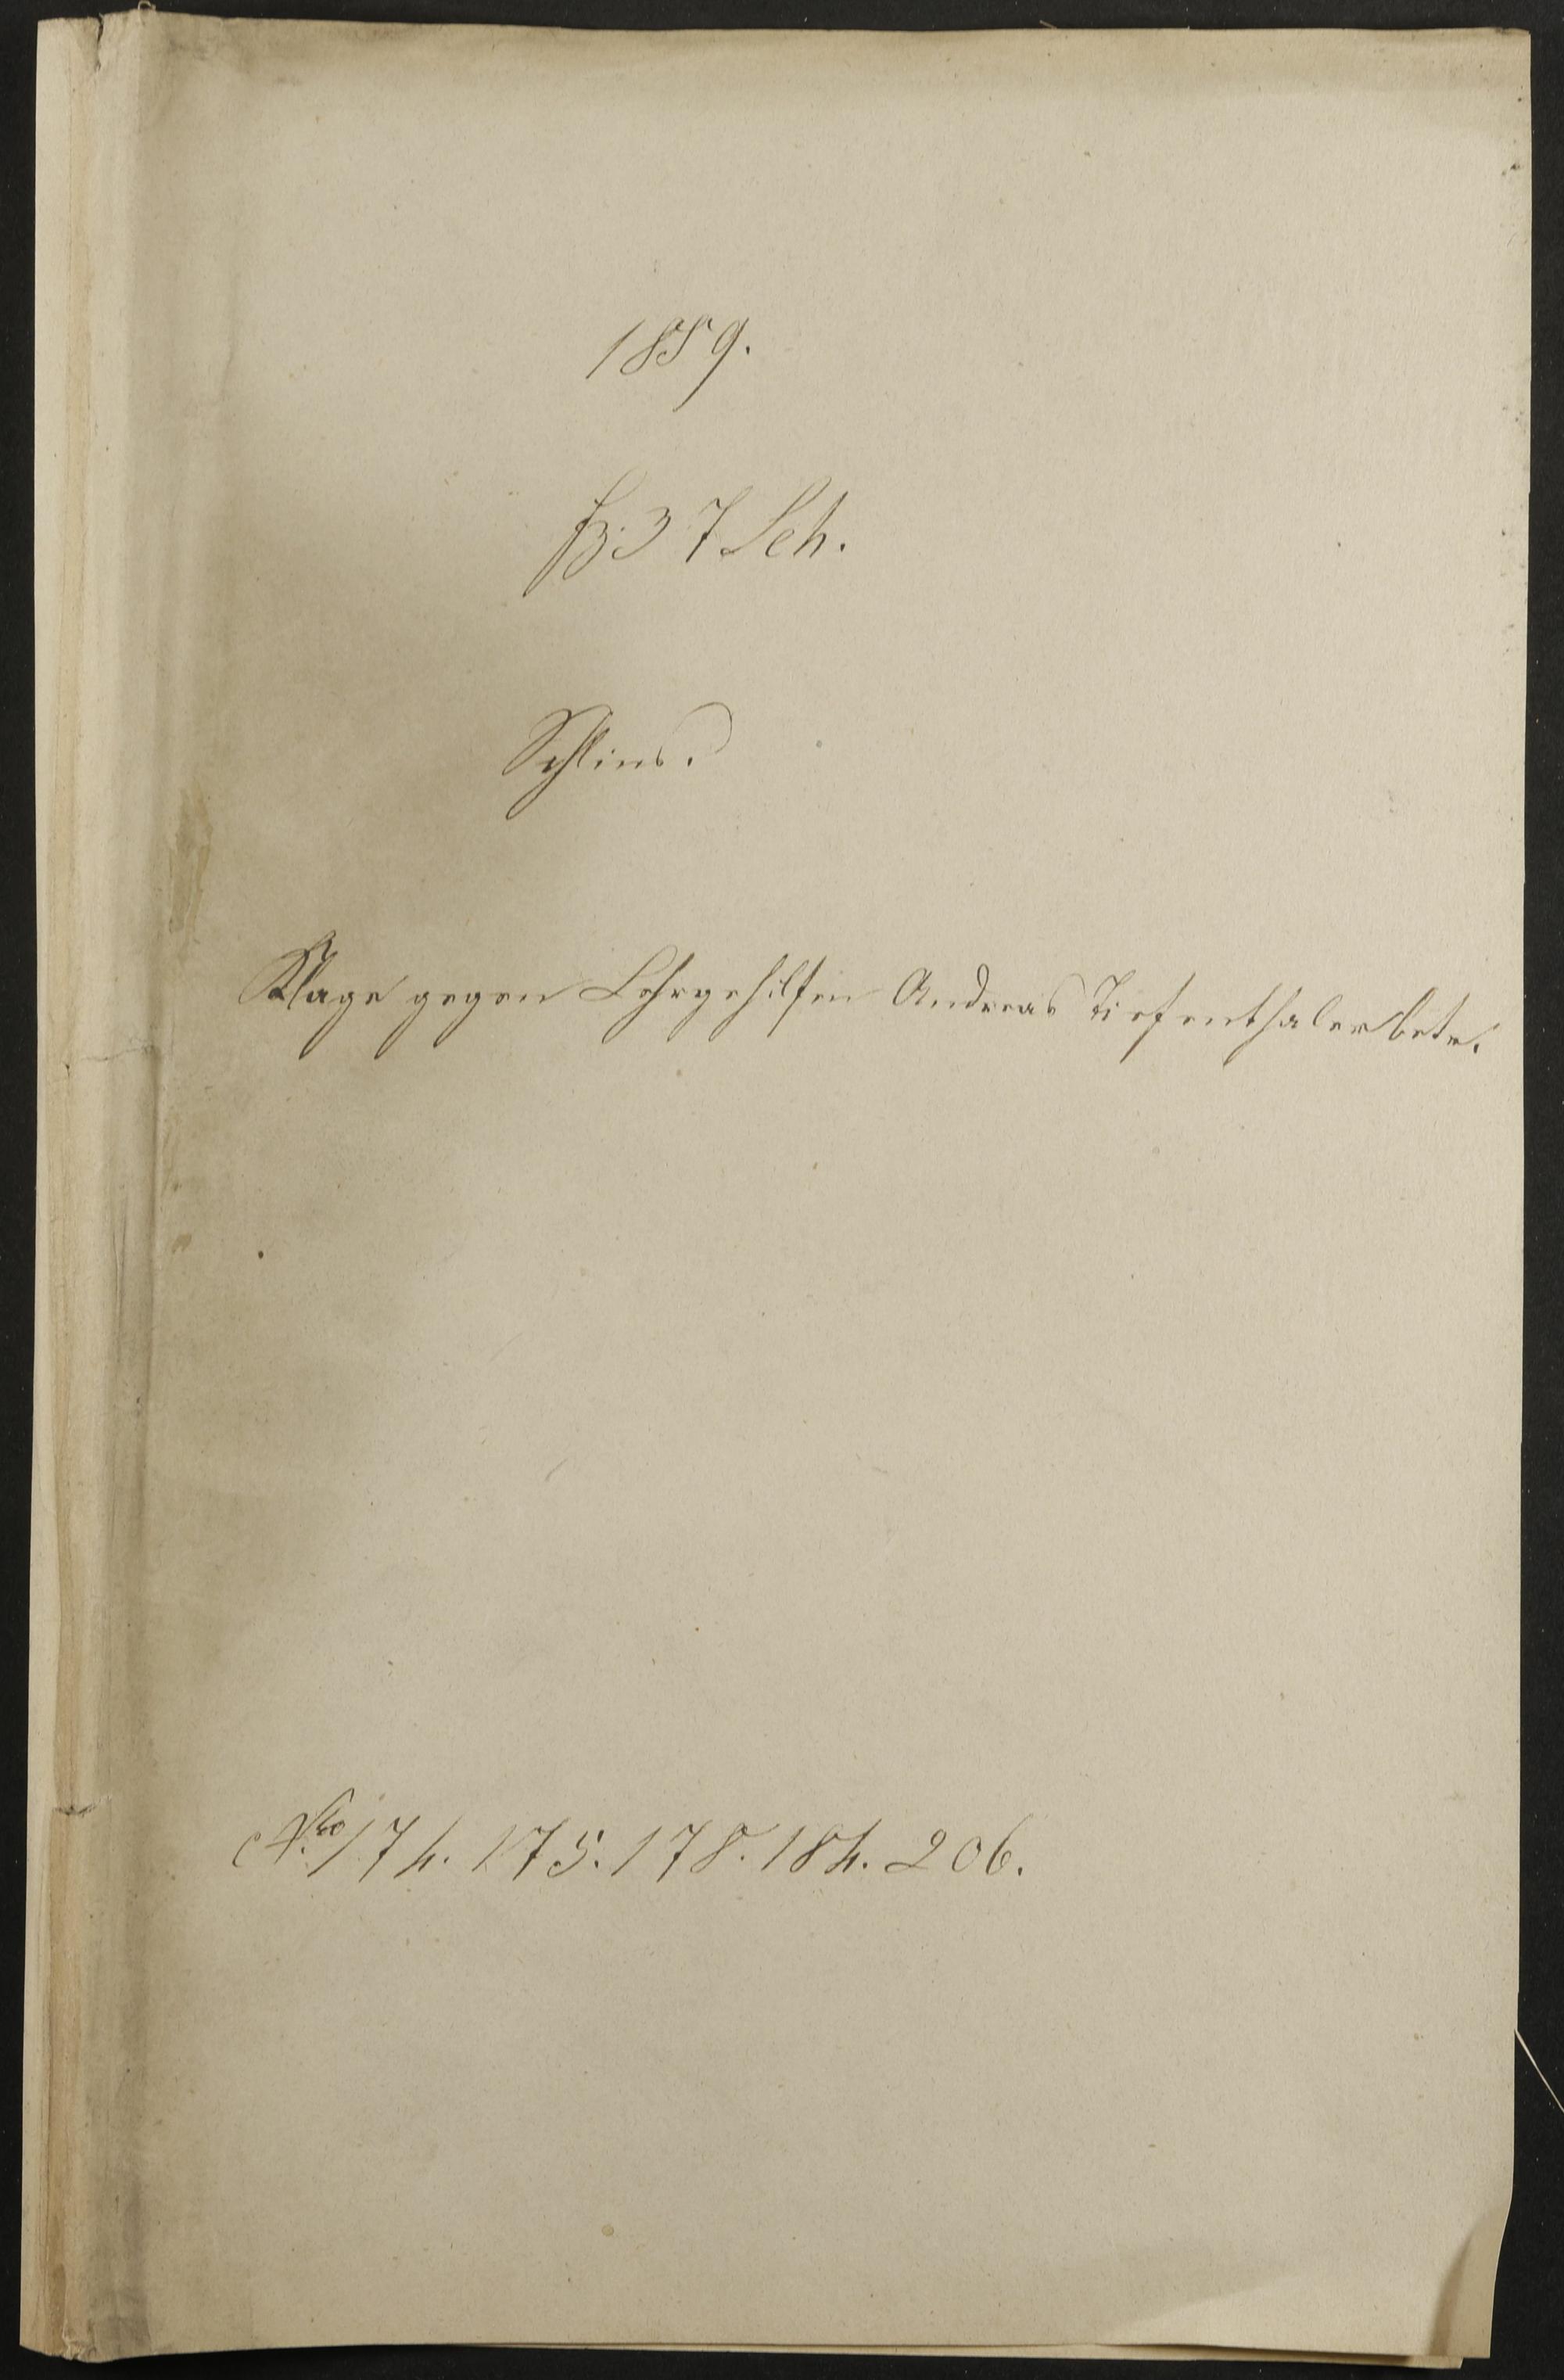 1859.
fz. 37 Sch.
Schlins.
Klage gegen Lehrgehilfen Andreas Tiefenthaler betr.
No 174. 175. 178. 184. 206.